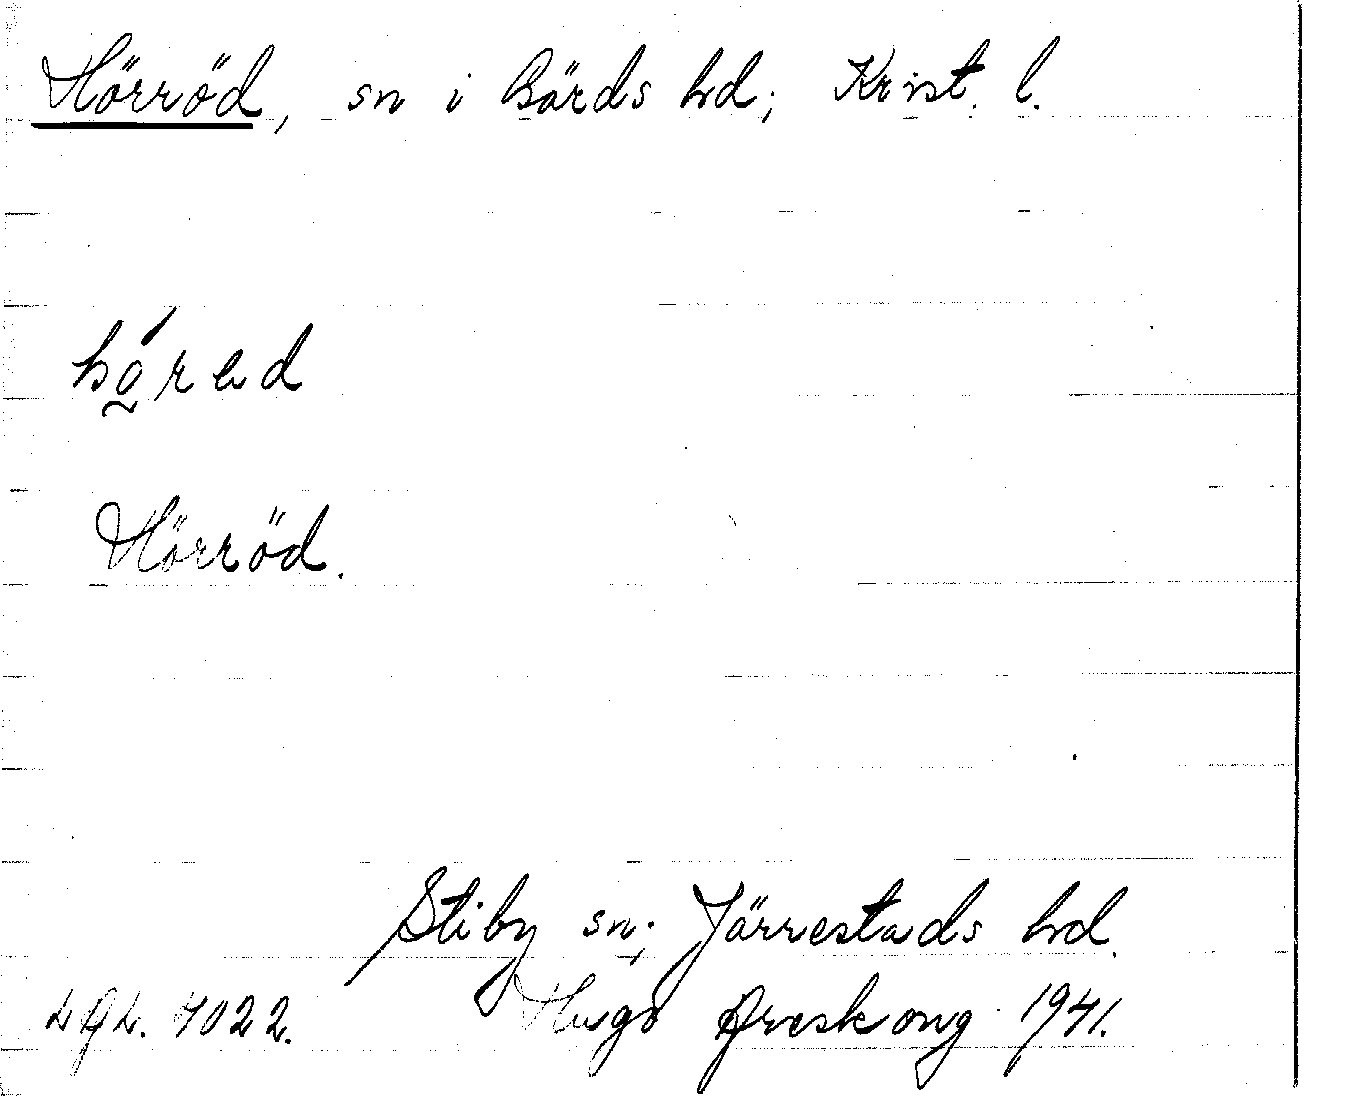 Hörröd, sn i Gärds hd; Krist. l.
hǿ̰rad
Hörröd.
Stiby sn; Järrestads hd.
4022. Hugo Areskoug 1941.